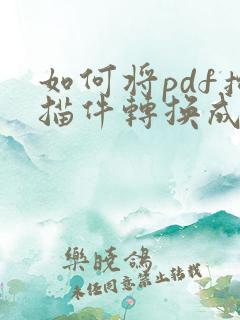 如何将pdf扫
描件轉换成
樂曉鴿
未经同意禁止转载